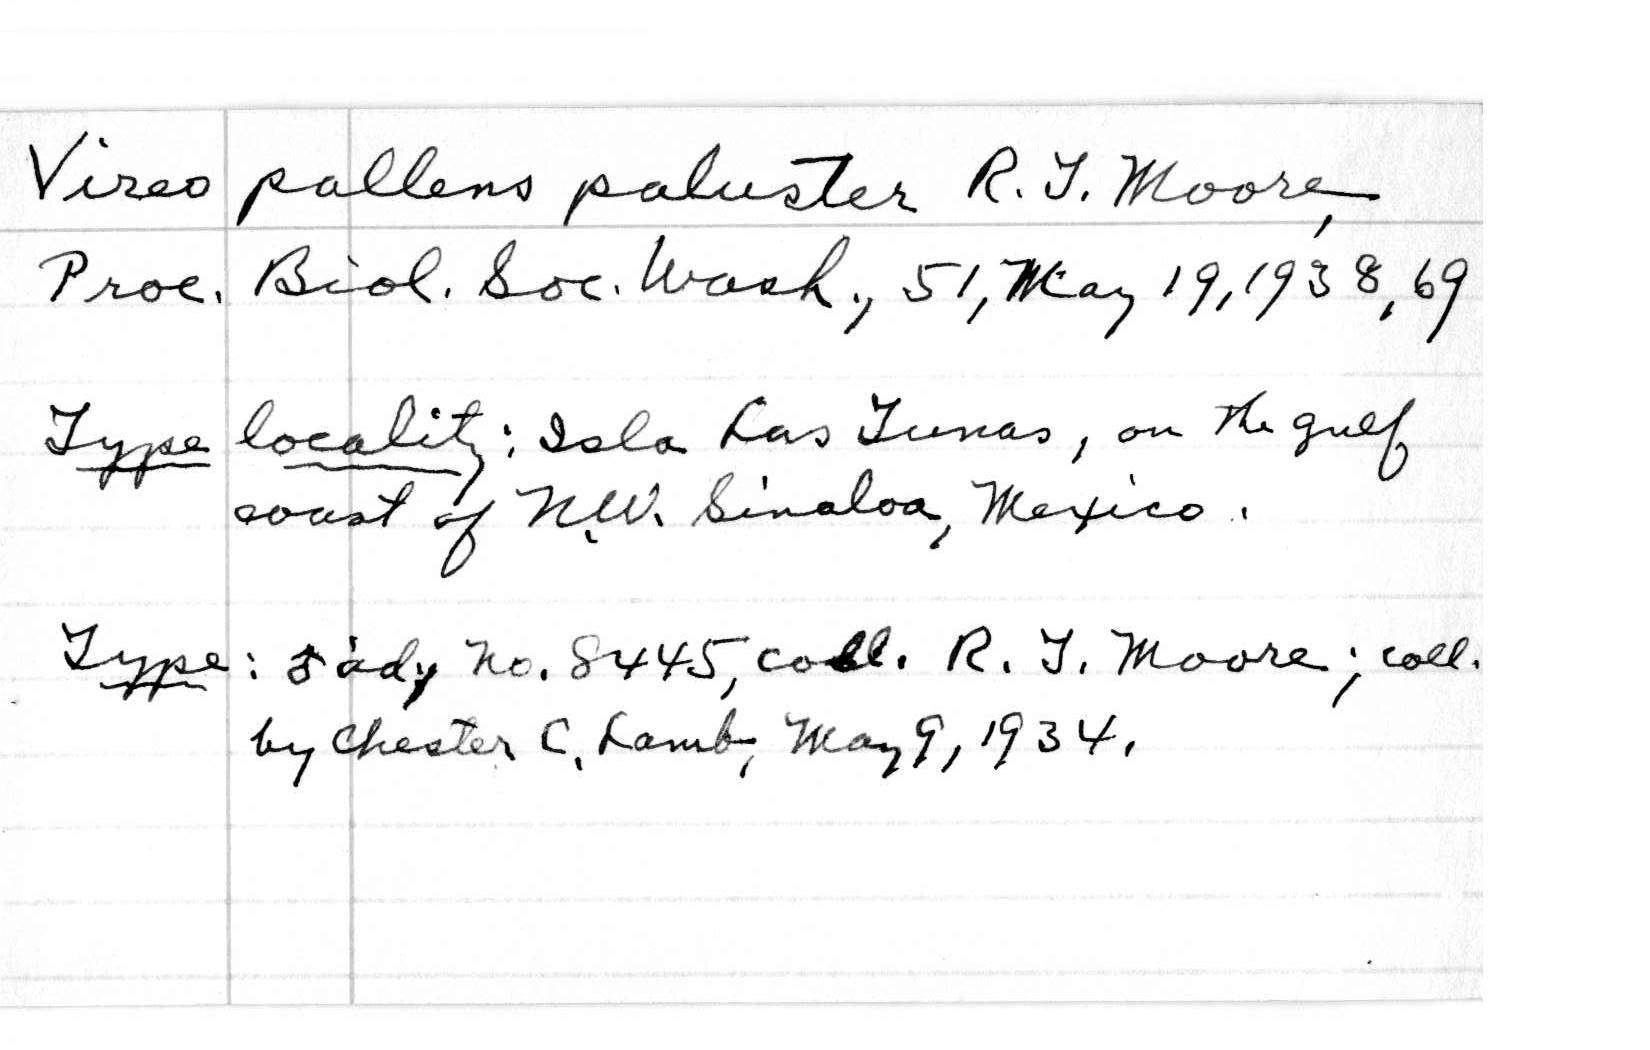 Vireo pallens paluster R. T. Moore,
Proc. Biol. Soc. Wash., 51, May 19, 1938, 69
Type locality: Isla Las Tunas, on the gulf
coast of N.W. Sinaloa, Mexico.
Type: ♂ ad., No. 8445, coll. R. T. Moore; coll.
by Chester C. Lamb, May 9, 1934.